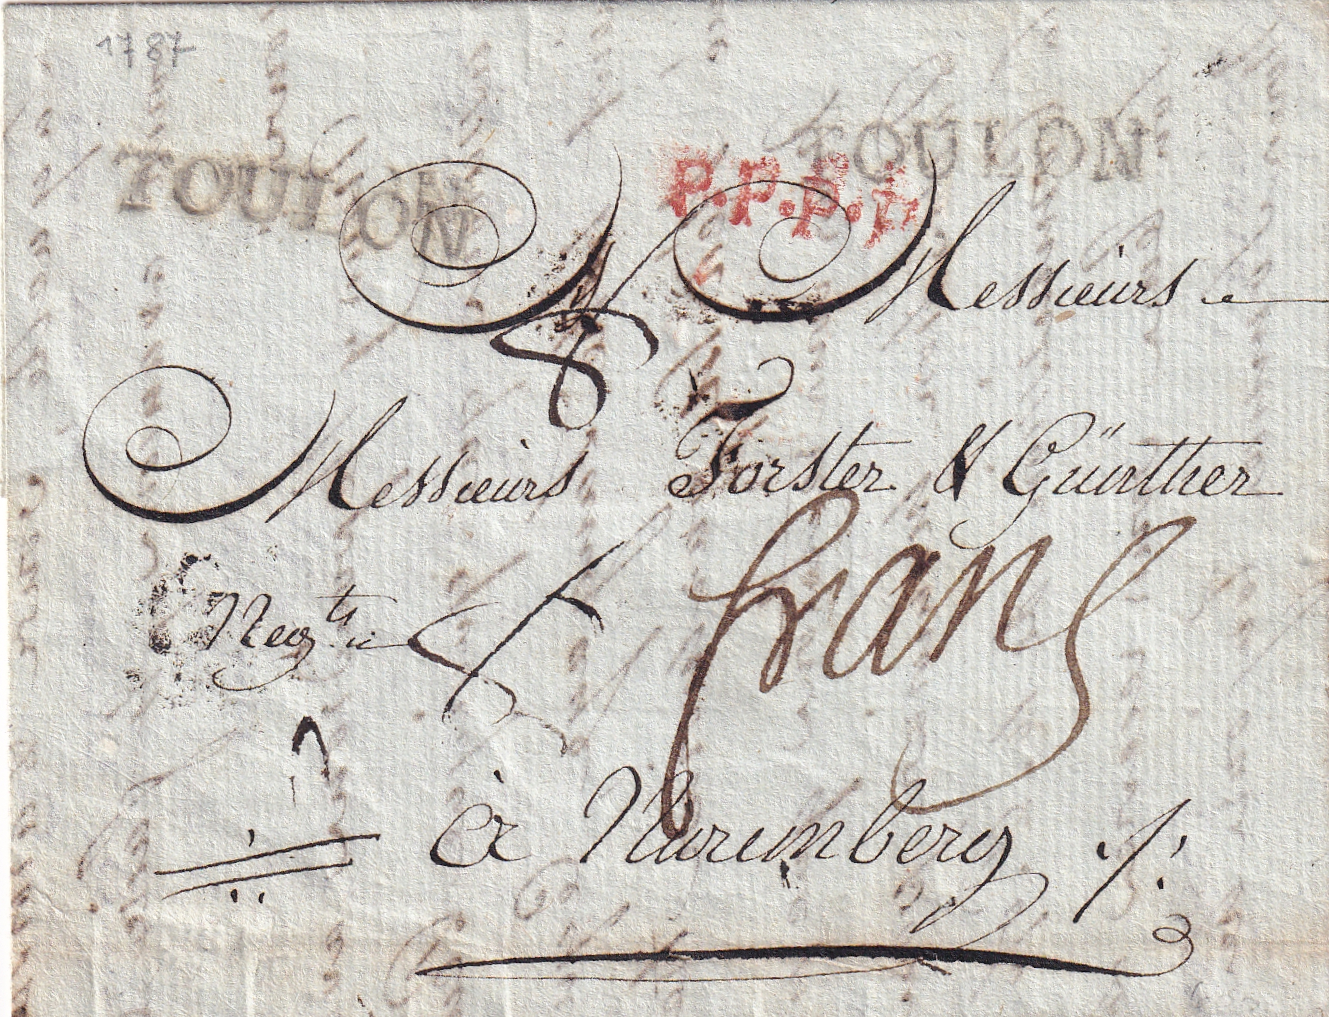 1787
TOULON
TOULON
P.P.P.P.
Messieurs
Messieurs Forster & Günther
Negts
franc
à Nuremberg